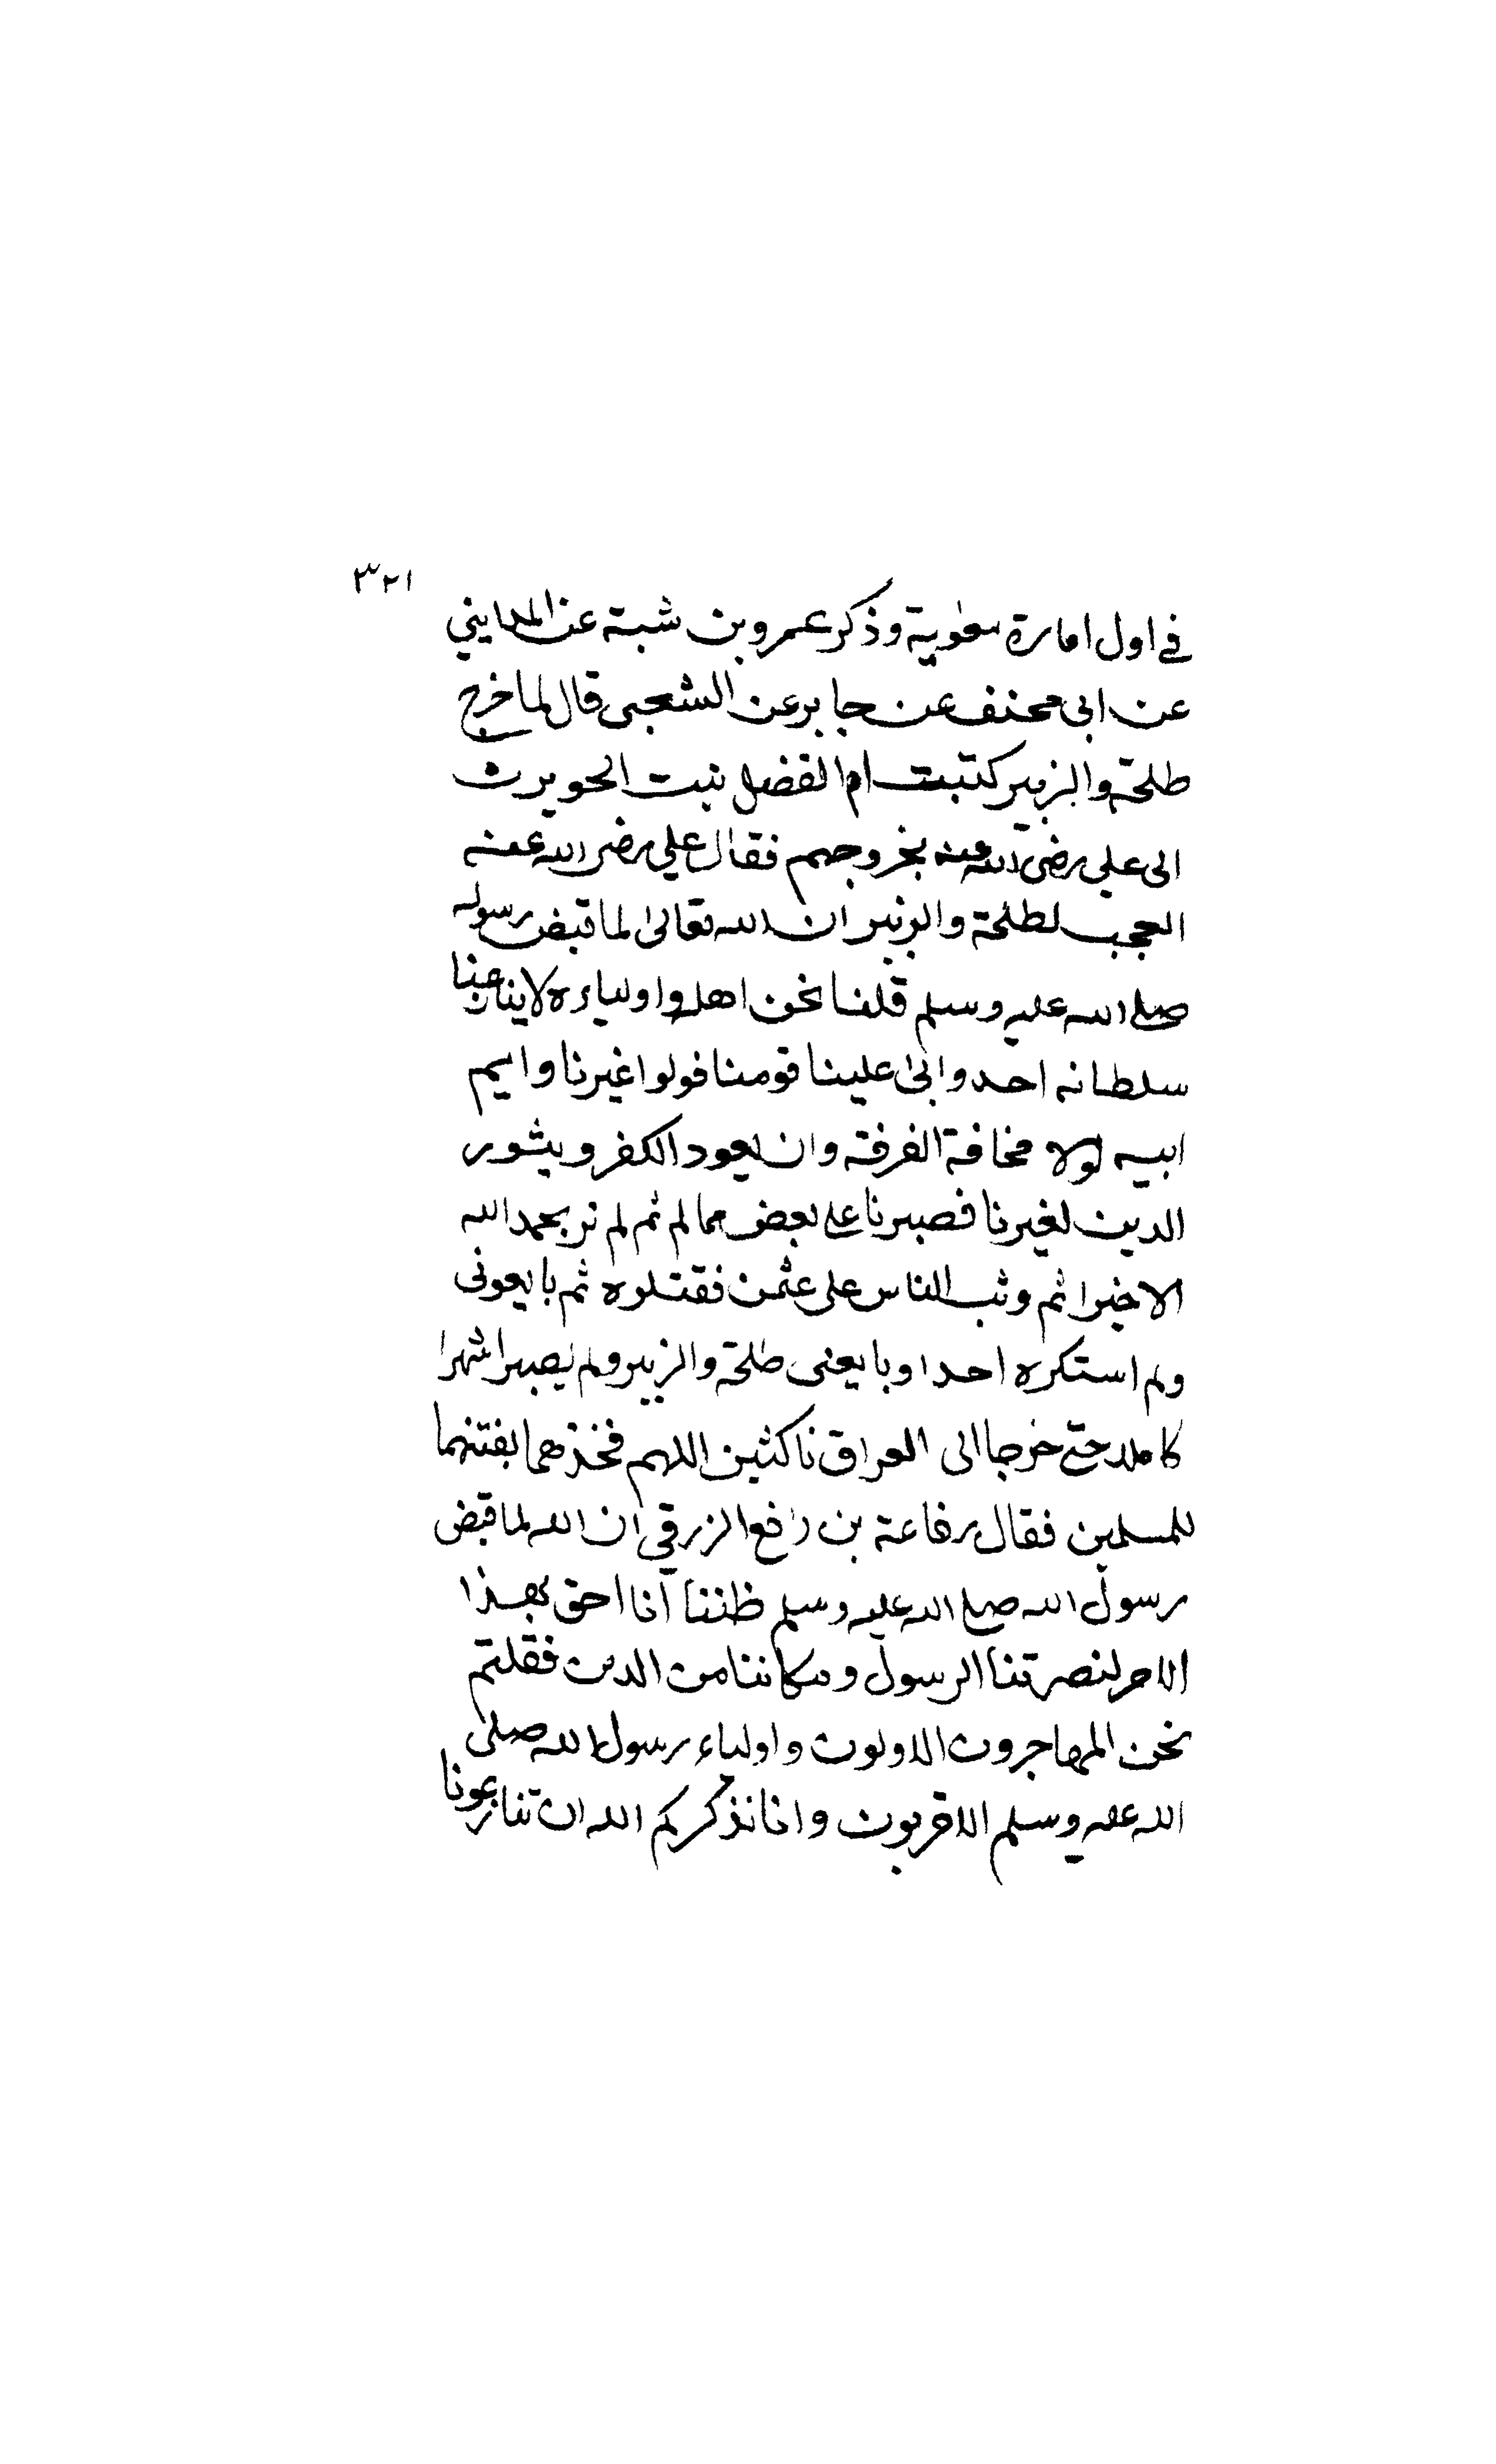 ٣٢١
في اول امارة معوية وذكر عمرو بن شبة عن المدايني
عن ابي مخنف عن جابر عن الشعبى قال لما خرج
طلحة والزبير كتبت ام الفضل بنت الحويرث
الى علي رضى الله عنه بخروجهم فقال علي رضى الله عنه
العجب لطلحة والزبير ان الله تعالى لما قبض رسوله
صلى الله عليه وسلم قلنا نحن اهله واولياءه لا ينازعنا
سلطانه احد وابى علينا قومنا فولوا غيرنا وايم
الله لولا مخافة الفرقة وان يعود الكفر ويثور
الدين لغيرنا فصبرنا على بعض مما لم ثم لم نر بحمد الله
الا خيرا ثم وثب الناس على عثمن فقتلوه ثم بايعونى
ولم استكره احدا وبايعنى طلحة والزبير ولم يصبرا شهرا
كاملا حتى خرجا الى العراق ناكثين اللهم فخذهما بفتنهما
للمسلمين فقال رفاعة بن رافع الزرقي ان الله لما قبض
رسول الله صلى الله عليه وسلم ظننا انا احق بهذا
الامر لنصرتنا الرسول ومكاننا من الدين فقلتم
نحن المهاجرون الاولون واولياء رسول الله صلى
الله عليه وسلم الاقربون وانا نذكركم الله ان تنازعونا